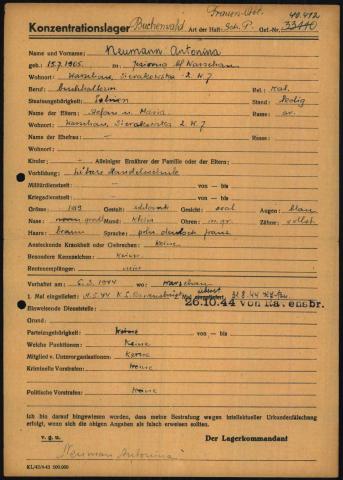 Frauen-Abt. 40.412
Konzentrationslager Buchenwald Art der Haft: Sch. P. Gef.-Nr.: 33440
Name und Vorname: Neumann Antonina
geb.: 15.7.1905. zu: b/ Warschau
Wohnort: Warschau, Sierakowska 2 W. 7
Beruf: Buchhalterin Rel.: kat.
Staatsangehörigkeit: Polnisch Stand: ledig
Name der Eltern: Stefan u. Maria Rasse: ar.
Wohnort: Warschau, Sierakowska 2 W. 7
Name der Ehefrau: — Rasse: —
Wohnort: —
Kinder: — Alleiniger Ernährer der Familie oder der Eltern: —
Vorbildung: Handelsschule
Militärdienstzeit: — von — bis —
Kriegsdienstzeit: — von — bis —
Grösse: 169 Gestalt: schlank Gesicht: oval Augen: blau
Nase: groß Mund: klein Ohren: m.gr. Zähne: vollst.
Haare: braun Sprache: poln. deutsch franz
Ansteckende Krankheit oder Gebrechen: Keine
Besondere Kennzeichen: Keine
Rentenempfänger: nein
Verhaftet am: 5.3.1944 wo: Warschau
1. Mal eingeliefert: 4.5.44 K.L. Ravensbrück 2. Mal eingeliefert: 31.8.44
26.10.44 von Ravensbr.
Einweisende Dienststelle:
Grund:
Parteizugehörigkeit: Keine von — bis —
Welche Funktionen: Keine
Mitglied v. Unterorganisationen: Keine
Kriminelle Vorstrafen: Keine
Politische Vorstrafen: Keine
Ich bin darauf hingewiesen worden, dass meine Bestrafung wegen intellektueller Urkundenfälschung
erfolgt, wenn sich die obigen Angaben als falsch erweisen sollten.
v. g. u. Der Lagerkommandant
Neuman Antonina
KL/42/4.43 500.000